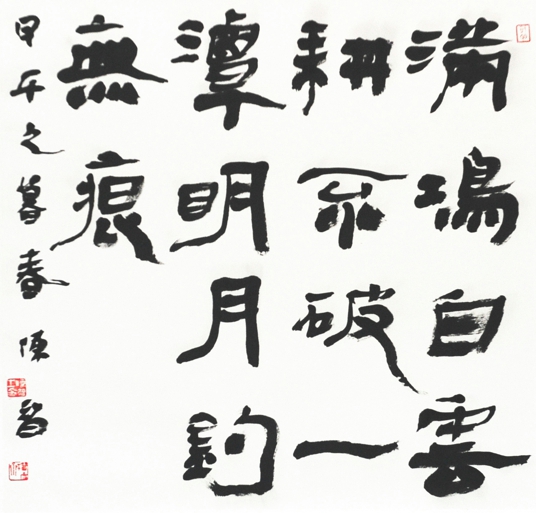 滿塢白雲
耕不破一
潭明月釣
無痕
甲午之暮春 陳